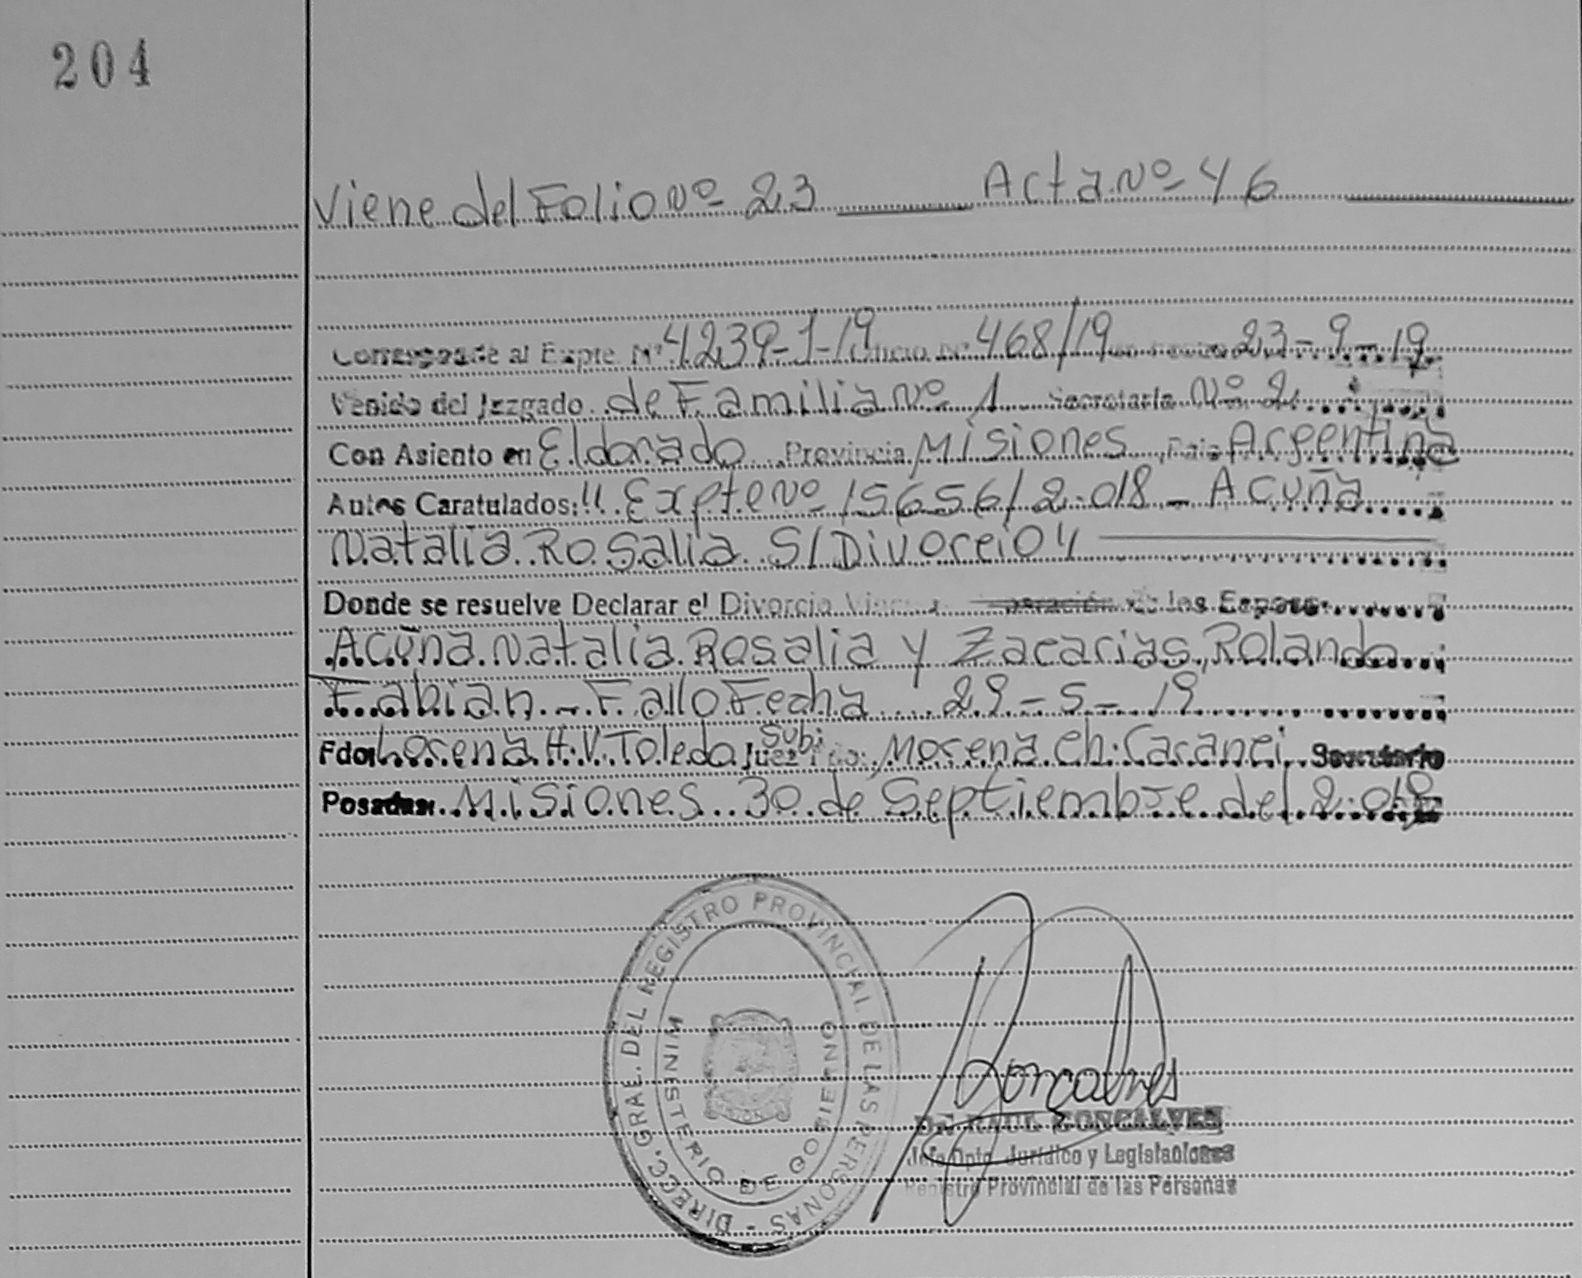 204
Viene del Folio Nº 23 Acta Nº 46
Corresponde al Expte. Nº 4239-1-19 Oficio Nº 468/19 de Fecha 23-9-19
Venido del Juzgado de Familia Nº 1 Secretaria Nº 2
Con Asiento en Eldorado Provincia Misiones Pais Argentina
Autos Caratulados: "Expte Nº 15656/2.018 - Acuña
Natalia Rosalia S/Divorcio"
Donde se resuelve Declarar el Divorcio de los Esposos
Acuña Natalia Rosalia y Zacarias, Rolando
Fabian - Fallo Fecha 29-5-19
Fdo: Lorena H.V. Toledo Juez Sub: Morena Ch. Caranei Secretario
Posadas: Misiones 30 de Septiembre del 2.019
DIRECC. GRAL. DEL REGISTRO PROVINCIAL DE LAS PERSONAS -
MINISTERIO DE GOBIERNO
Gonçalves
Dr. RAUL GONCALVES
Jefe Dpto. Jurídico y Legislaciones
Registro Provincial de las Personas